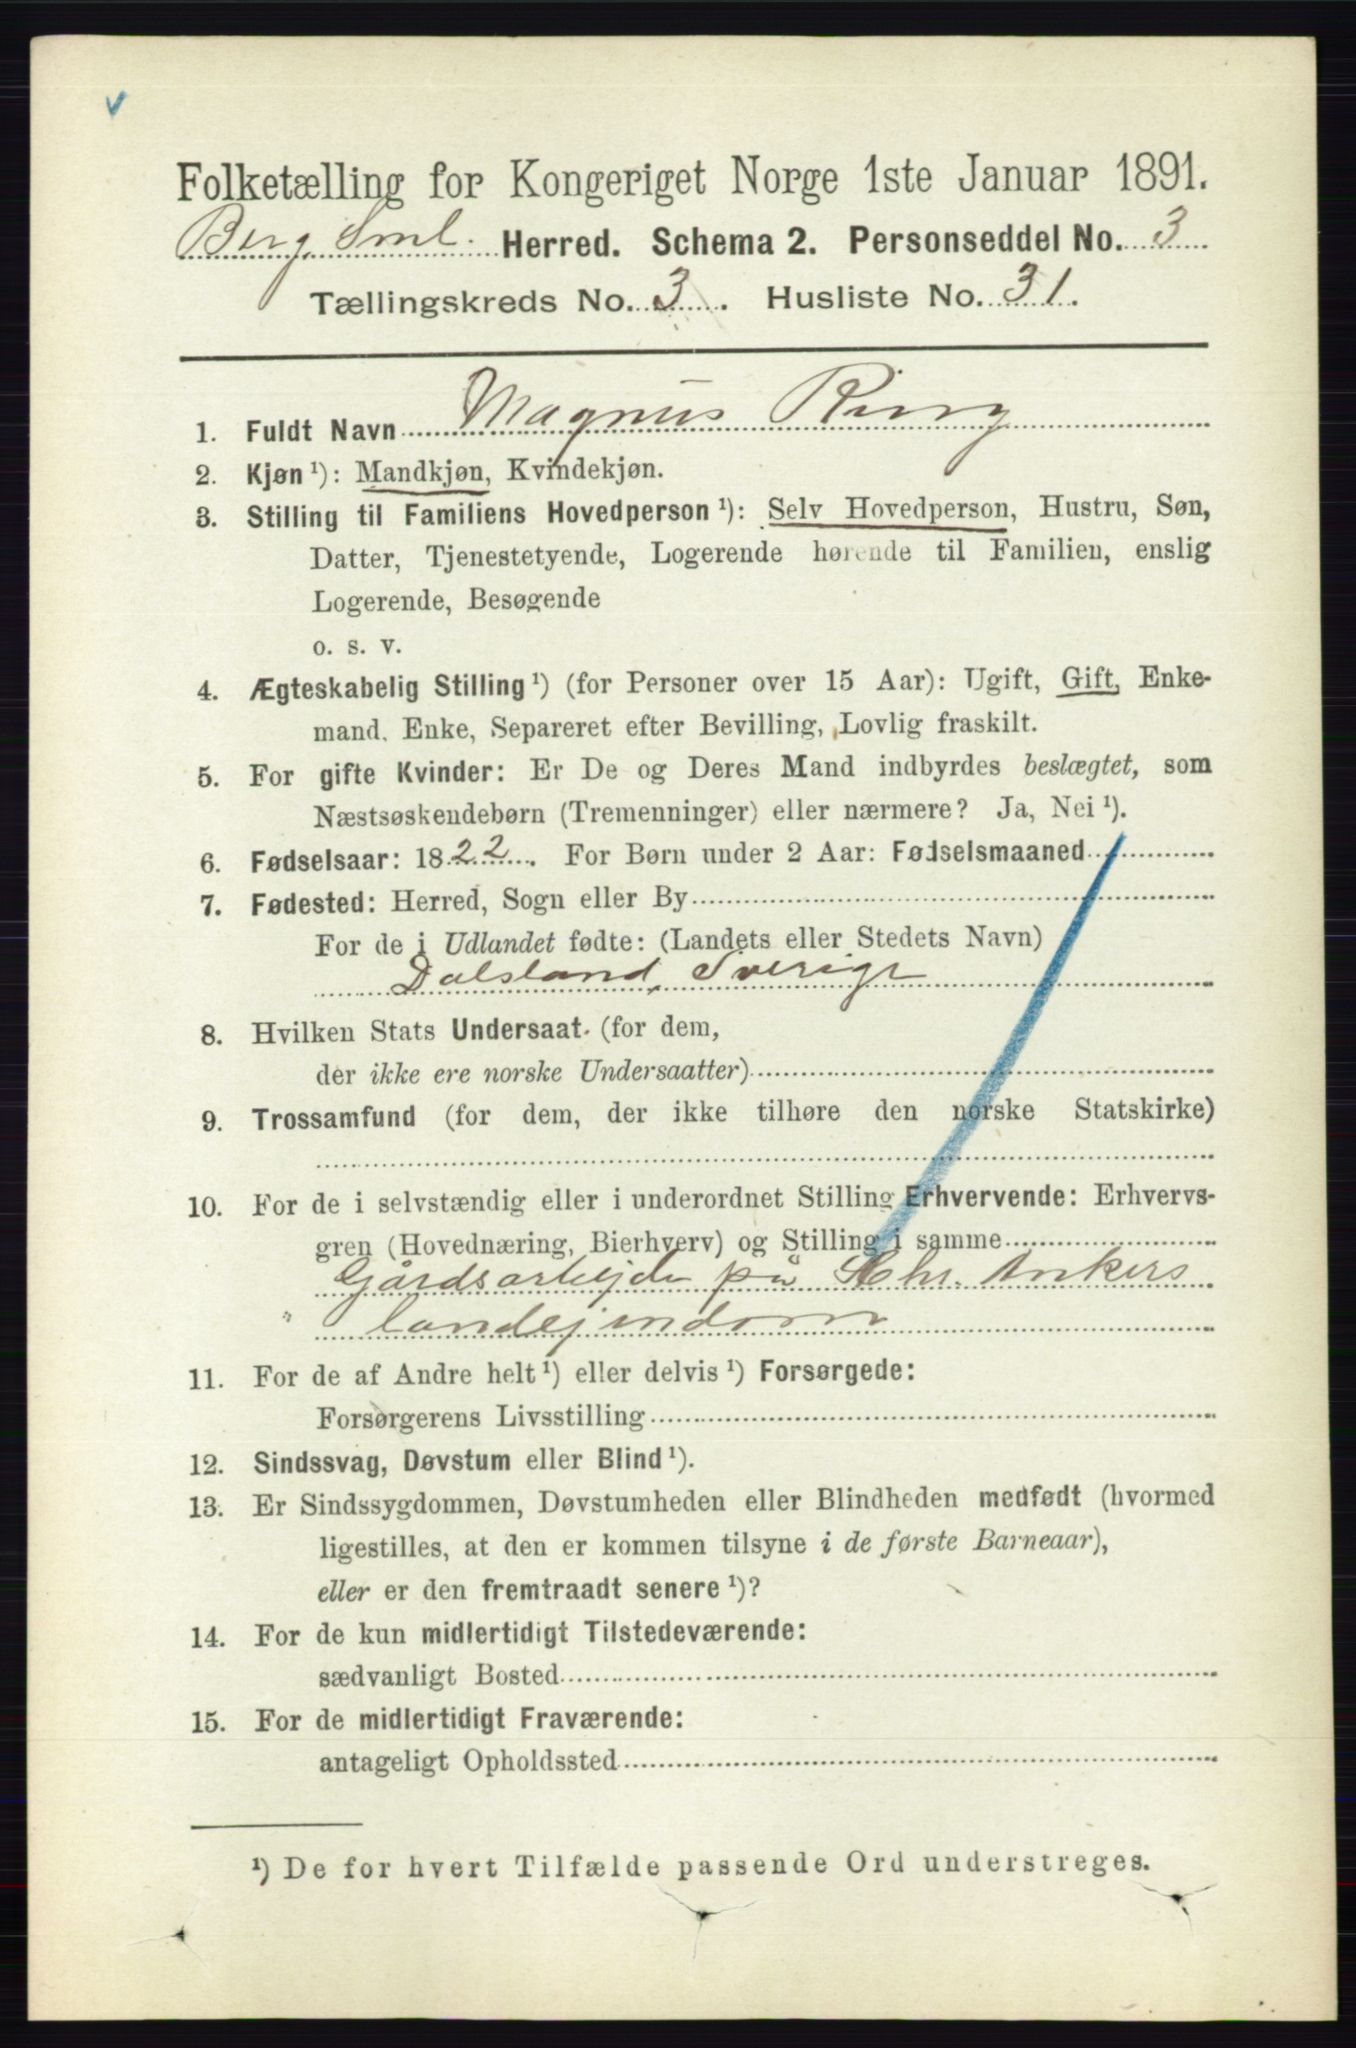 Folketælling for Kongeriget Norge 1ste Januar 1891.
Berg, Sml. Herred. Schema 2. Personseddel No. 3
Tællingskreds No. 3. Husliste No. 31.
1. Fuldt Navn Magnus Ring
2. Kjøn ¹): Mandkjøn, Kvindekjøn.
3. Stilling til Familiens Hovedperson ¹): Selv Hovedperson, Hustru, Søn,
Datter, Tjenestetyende, Logerende hørende til Familien, enslig
Logerende, Besøgende
o. s. v.
4. Ægteskabelig Stilling ¹) (for Personer over 15 Aar): Ugift, Gift, Enke-
mand, Enke, Separeret efter Bevilling, Lovlig fraskilt.
5. For gifte Kvinder: Er De og Deres Mand indbyrdes beslægtet, som
Næstsøskendebørn (Tremenninger) eller nærmere? Ja, Nei ¹).
6. Fødselsaar: 1822. For Børn under 2 Aar: Fødselsmaaned
7. Fødested: Herred, Sogn eller By
For de i Udlandet fødte: (Landets eller Stedets Navn)
Dalsland, Sverige
8. Hvilken Stats Undersaat (for dem,
der ikke ere norske Undersaatter)
9. Trossamfund (for dem, der ikke tilhøre den norske Statskirke)
10. For de i selvstændig eller i underordnet Stilling Erhvervende: Erhvervs-
gren (Hovednæring, Bierhverv) og Stilling i samme
Gårdsarbejde på Chr. Ankers
landejendom
11. For de af Andre helt ¹) eller delvis ¹) Forsørgede:
Forsørgerens Livsstilling
12. Sindssvag, Døvstum eller Blind ¹).
13. Er Sindssygdommen, Døvstumheden eller Blindheden medfødt (hvormed
ligestilles, at den er kommen tilsyne i de første Barneaar),
eller er den fremtraadt senere ¹)?
14. For de kun midlertidigt Tilstedeværende:
sædvanligt Bosted
15. For de midlertidigt Fraværende:
antageligt Opholdssted
¹) De for hvert Tilfælde passende Ord understreges.